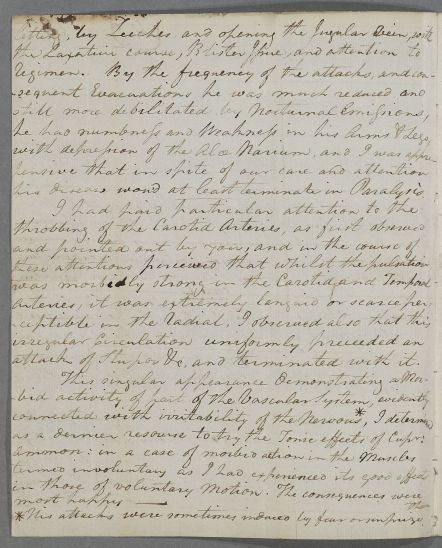 by Leeches and opening the Jugular Vein, with
the Laxative course, Blister, Issue, and attention to
Regimen. By the frequency of the attacks, and con-
-sequent Evacuations he was much reduced and
still more debilitated by Nocturnal Emissions,
he had numbness and Weakness in his Arms & Legs,
with depression of the Alæ Narium, and I was appre
hensive that in spite of our care and attention
his disease woud at least terminate in Paralysis.
I had paid particular attention to the
throbbing of the Carotid Arteries, as first observed
and pointed out by you, and in the course of
these attentions perceived that whilst the pulsation
was morbidly strong in the Carotid and Temporal
Arteries, it was extremely languid or scarce per-
ceptible in the Radial, I observed also that this
irregular circulation uniformly preceeded an
attack of Stupor &c, and terminated with it.
This singular appearance demonstrating a Mor-
-bid activity of part of the Vascular System, evidently
connected with irritability of the Nervous*, I determined
as a dernier resourse to try the Tonic effects of Cupr:
Ammon: in a case of morbid action in the Muscles
termed involuntary as I had experienced its good effects
in those of voluntary Motion. The consequences were
most happy
*His attacks were sometimes induced by fear or surprize